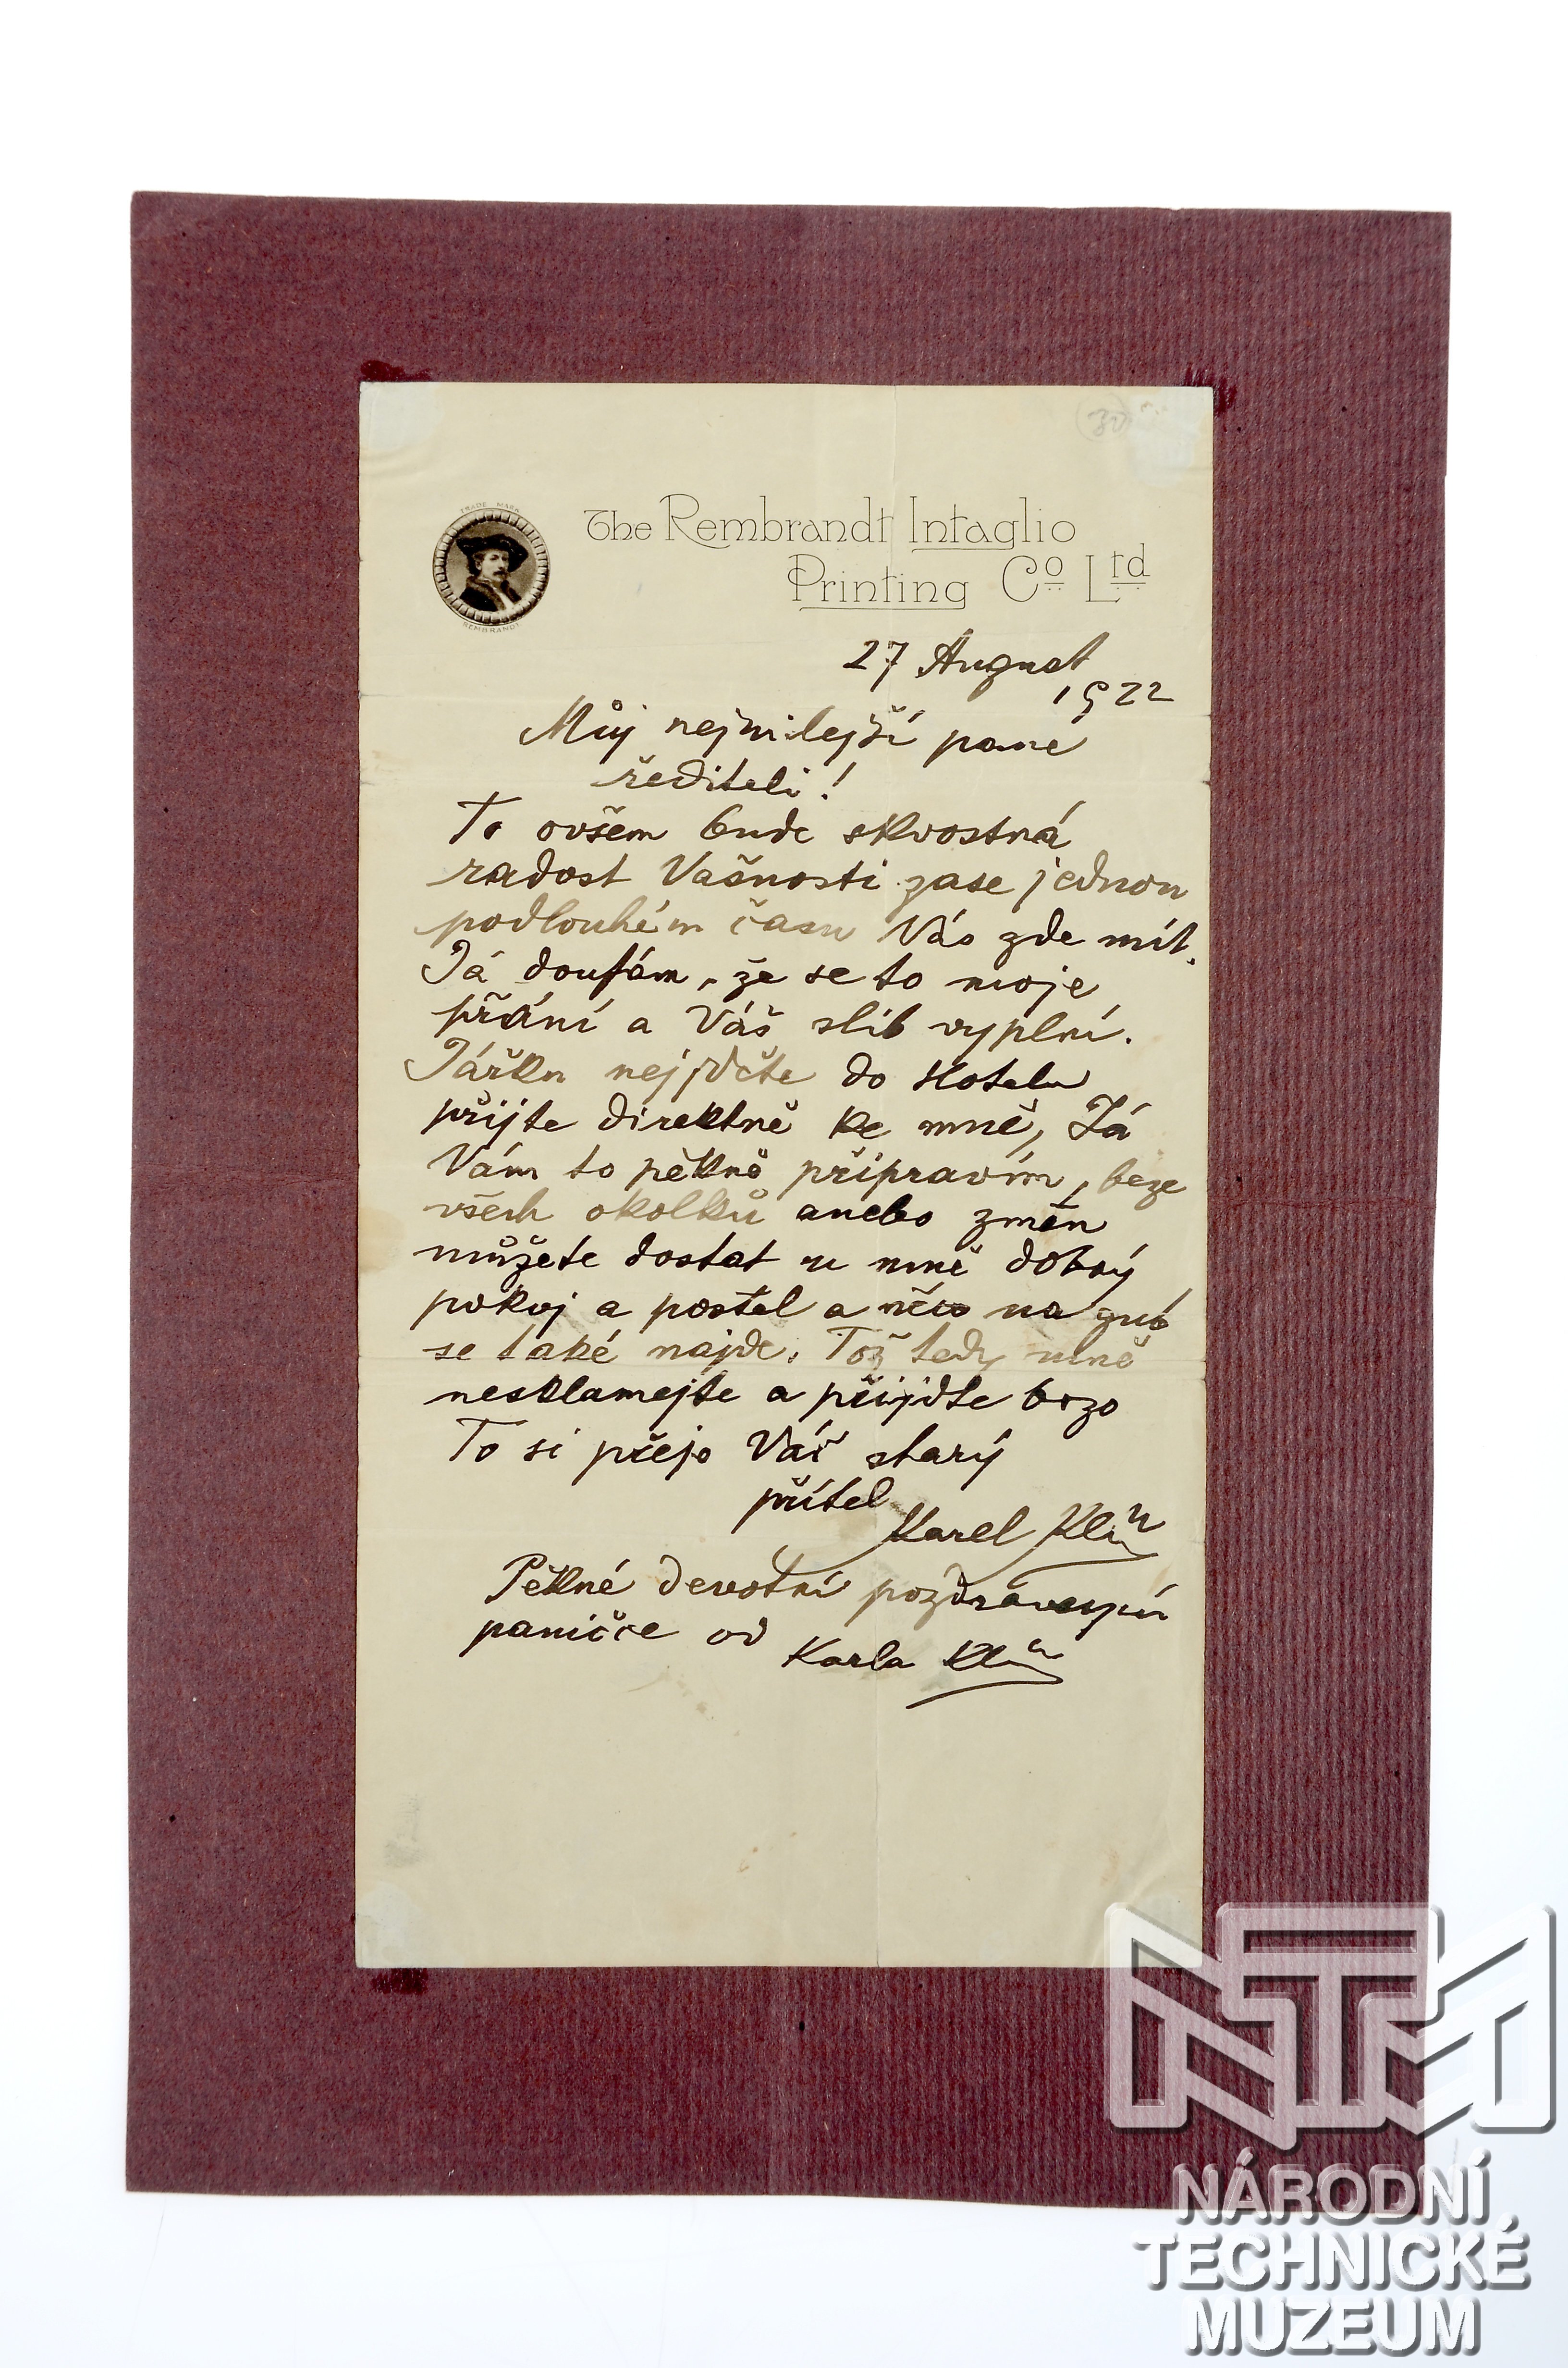 30
TRADE MARK
REMBRANDT
The Rembrandt Intaglio
Printing Co Ltd
27 August
1922
Můj nejmilejší pane
řediteli!
To ovšem bude skvostná
radost Vašnosti zase jednou
podlouhém času Vás zde mít.
Já doufám, že se to moje
přání a Váš slib vyplní.
Jářku nejděte do Hotelu
přijte direktně ke mně, Já
Vám to pěkně připravím, beze
všech okolků anebo změn
můžete dostat u mně dobrý
pokoj a postel a něco na zub
se také najde. Tož tedy mně
nesklamejte a přijdte brzo
To si přeje Váš starý
přítel
Karel Klíč
Pěkné devotní
paničce od
Karla Klíč
NTM
NÁRODNÍ
TECHNICKÉ
MUZEUM